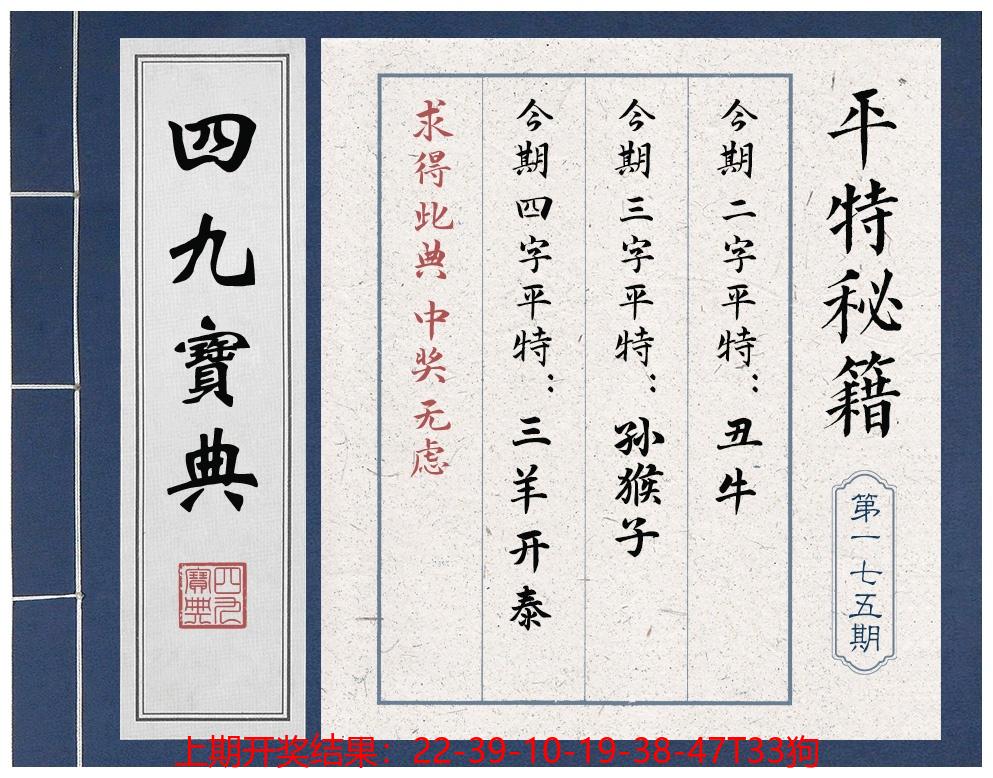 平特秘籍
第一七五期
今期二字平特：丑牛
今期三字平特：孙猴子
今期四字平特：三羊开泰
求得此典 中奖无虑
四九寶典
四九
寶典
上期开奖结果：22-39-10-19-38-47T33狗